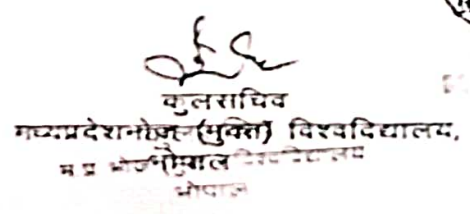 कुलसचिव
मध्यप्रदेश भोज (मुक्त) विश्वविद्यालय,
म प्र भोज भोपाल विश्वविद्यालय
भोपाल